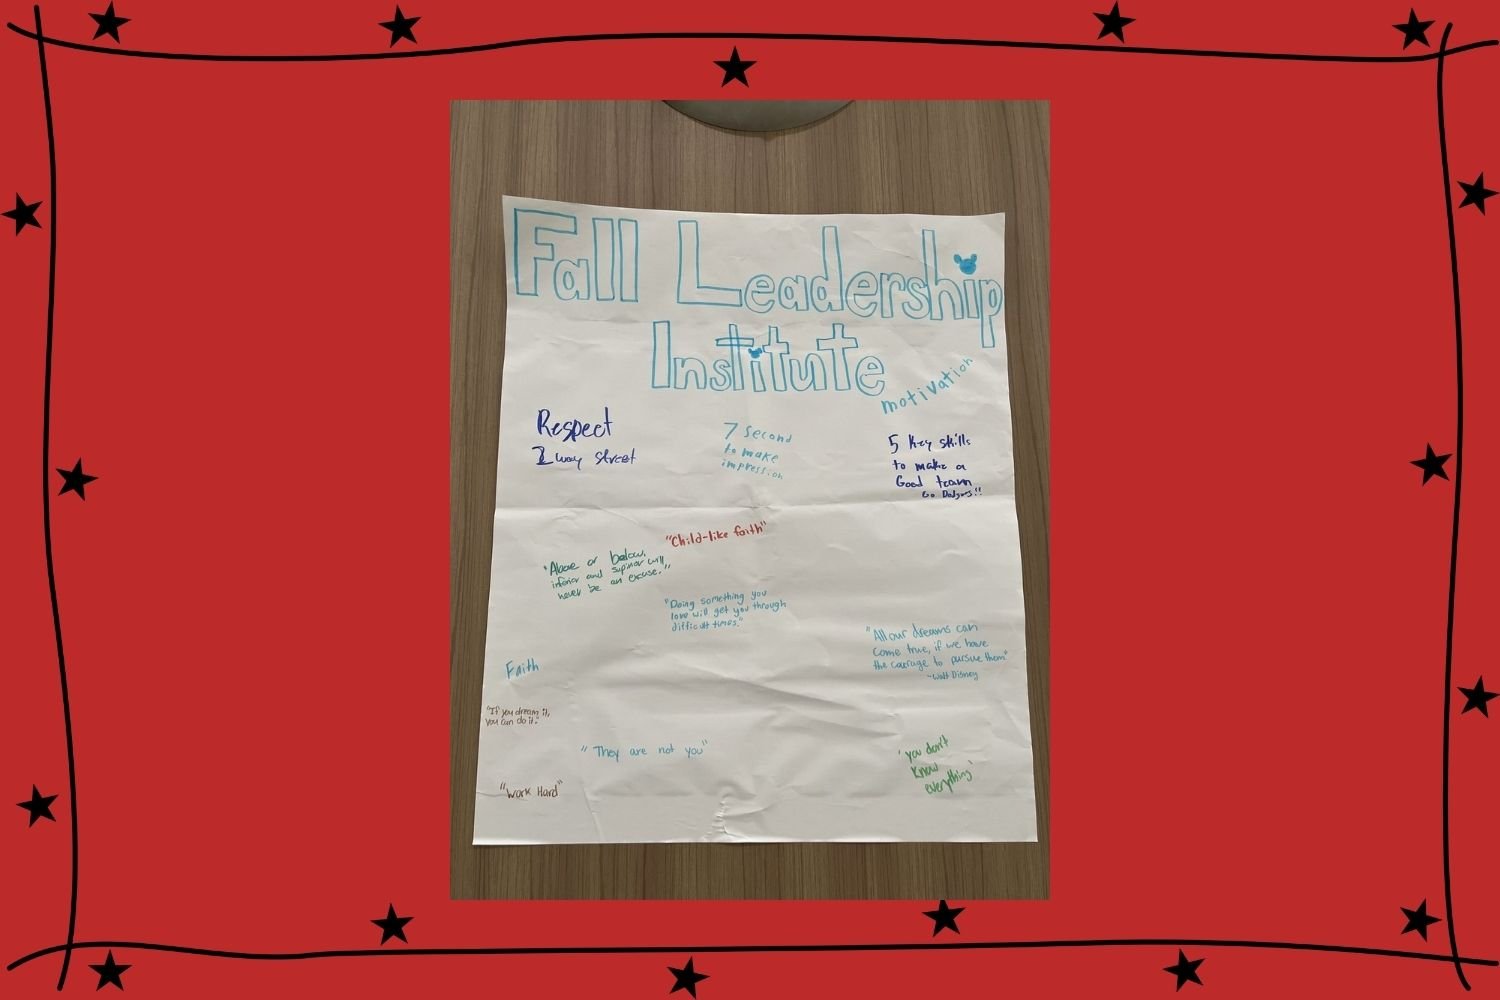 Fall Leadership
Institute
motivation
Respect
2 way street
7 second
to make
impression
5 key skills
to make a
Good team
Go Dodgers!!
"Child-like faith"
"Above or below,
inferior and superior will
never be an excuse."
"Doing something you
love will get you through
difficult times."
"All our dreams can
come true, if we have
the courage to pursue them"
-Walt Disney
Faith
"If you dream it,
you can do it."
"They are not you"
'you don't
know
everything'
"Work Hard"